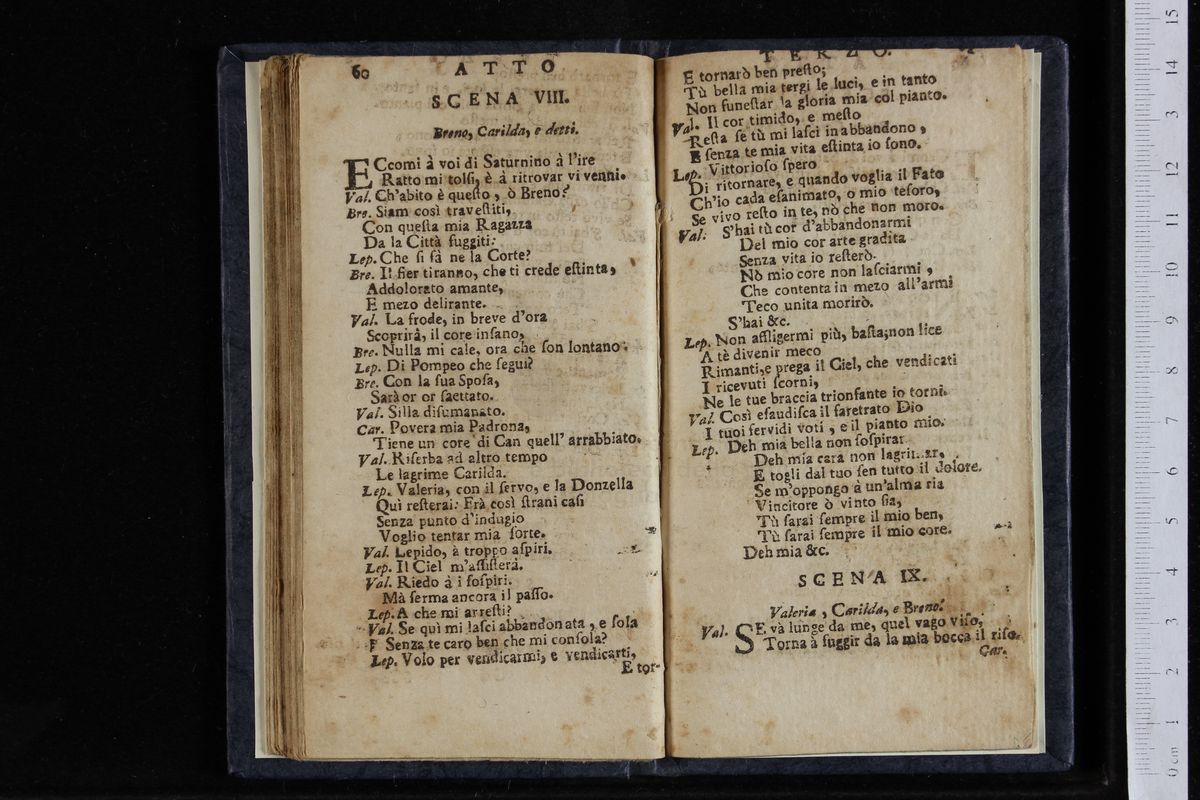 60 ATTO
SCENA VIII.
Breno, Carilda, e detti.
ECcomi à voi di Saturnino à l'ire
Ratto mi tolſi, è à ritrovar vi venni.
Val. Ch'abito è queſto, ò Breno?
Bre. Siam così traveſtiti,
Con queſta mia Ragazza
Da la Città fuggiti:
Lep. Che ſi fà ne la Corte?
Bre. Il fier tiranno, che ti crede eſtinta,
Addolorato amante,
E mezo delirante.
Val. La frode, in breve d'ora
Scoprirà, il core inſano,
Bre. Nulla mi cale, ora che ſon lontano.
Lep. Di Pompeo che ſeguì?
Bre. Con la ſua Spoſa,
Sarà or or ſaettato.
Val. Silla diſumanato.
Car. Povera mia Padrona,
Tiene un core di Can quell' arrabbiato.
Val. Riſerba ad altro tempo
Le lagrime Carilda.
Lep. Valeria, con il ſervo, e la Donzella
Quì reſterai: Frà così ſtrani caſi
Senza punto d'indugio
Voglio tentar mia ſorte.
Val. Lepido, à troppo aſpiri.
Lep. Il Ciel m'aſſiſterà.
Val. Riedo à i ſoſpiri.
Mà ferma ancora il paſſo.
Lep. A che mi arreſti?
Val. Se quì mi laſci abbandonata, e ſola
E Senza te caro ben che mi conſola?
Lep. Volo per vendicarmi, e vendicarti,
E tor-
TERZO.
E tornarò ben preſto;
Tù bella mia tergi le luci, e in tanto
Non funeſtar la gloria mia col pianto.
Val. Il cor timido, e meſto
Reſta ſe tù mi laſci in abbandono,
E ſenza te mia vita eſtinta io ſono.
Lep. Vittorioſo ſpero
Di ritornare, e quando voglia il Fato
Ch'io cada eſanimato, o mio teſoro,
Se vivo reſto in te, nò che non moro.
Val: S'hai tù cor d'abbandonarmi
Del mio cor arte gradita
Senza vita io reſterò.
Nò mio core non laſciarmi,
Che contenta in mezo all'armi
Teco unita morirò.
S'hai &c.
Lep. Non affligermi più, baſta; non lice
A tè divenir meco
Rimanti, e prega il Ciel, che vendicati
I ricevuti ſcorni,
Ne le tue braccia trionfante io torni.
Val. Così eſaudiſca il faretrato Dio
I tuoi fervidi voti, e il pianto mio.
Lep. Deh mia bella non ſoſpirar
Deh mia cara non lagrimar,
E togli dal tuo ſen tutto il dolore.
Se m'oppongo à un'alma ria
Vincitore ò vinto ſia,
Tù ſarai ſempre il mio ben,
Tù ſarai ſempre il mio core.
Deh mia &c.
SCENA IX.
Valeria, Carilda, e Breno.
Val. SE và lunge da me, quel vago viſo,
Torna à fuggir da la mia bocca il riſo.
Car.
0 cm 1 2 3 4 5 6 7 8 9 10 11 12 13 14 15